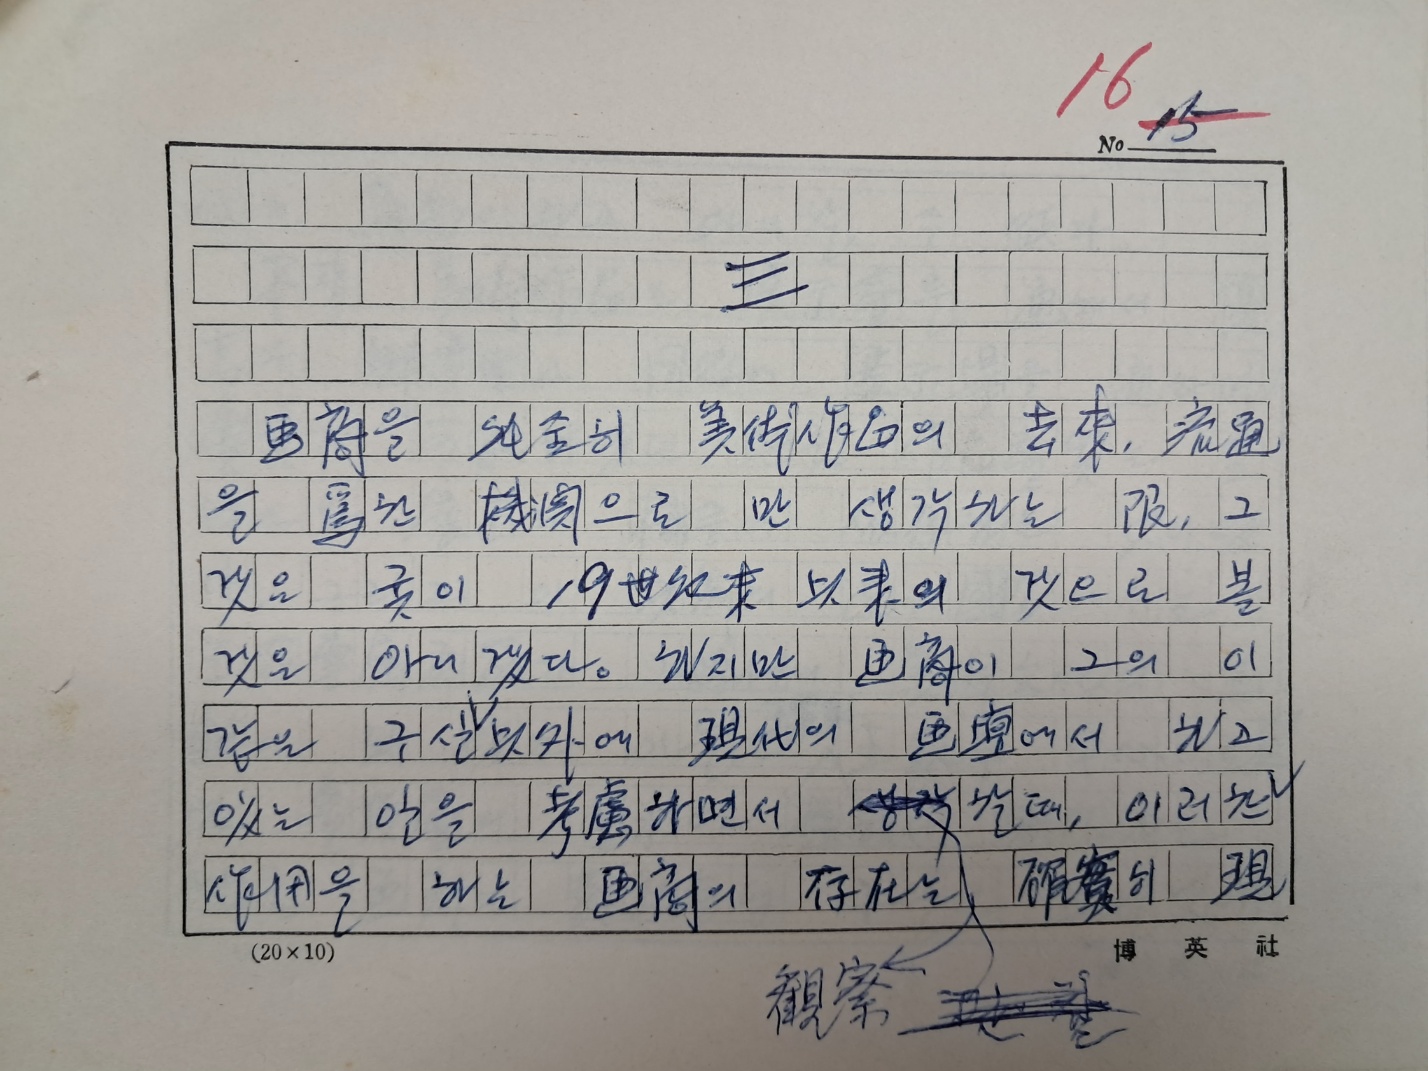 16
No 15
三
画商을 純全히 美術作品의 去來, 流通
을 爲한 機関으로 만 생각하는 限, 그
것은 굳이 19世紀末 以来의 것으로 볼
것은 아니겠다。 하지만 画商이 그의 이
같은 구실以外에 現代의 画壇에서 하고
있는 일을 考慮하면서 할때, 이러한
作用을 하는 画商의 存在는 確實히 現
(20×10)
博英社
観察